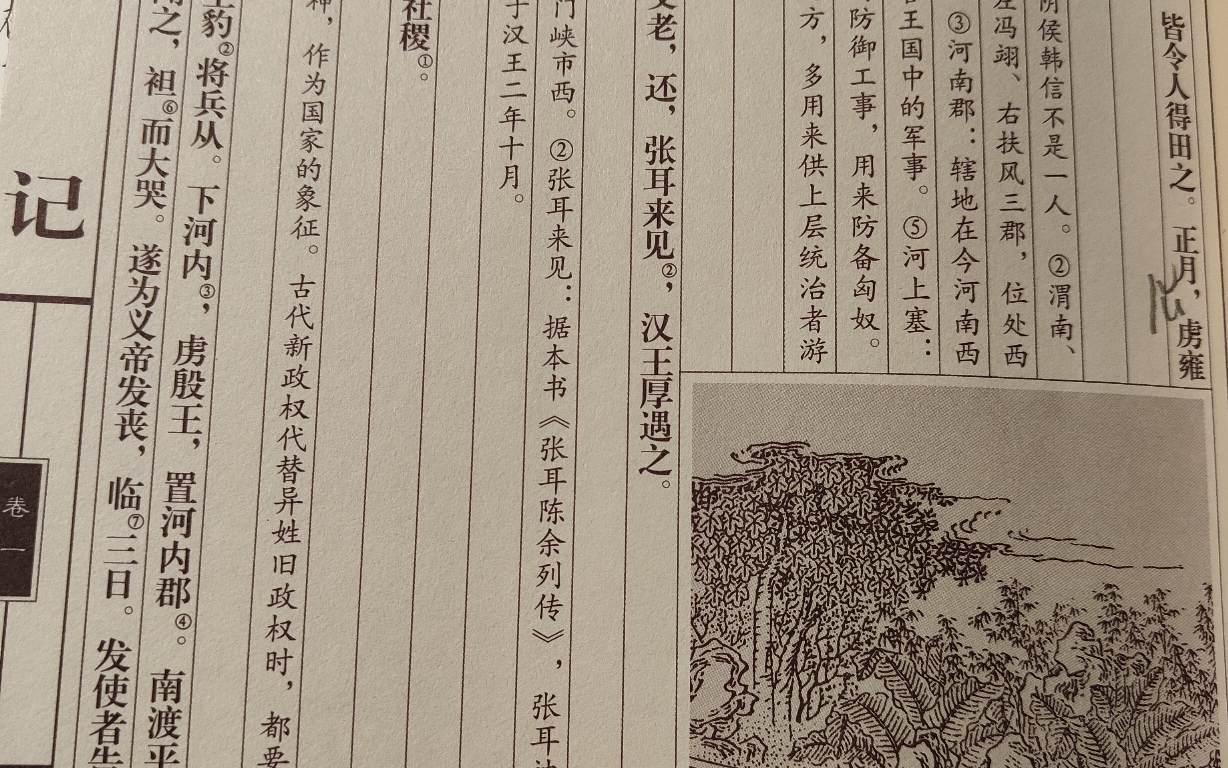 皆令人得田之。正月，虏雍
阴侯韩信不是一人。②渭南、
左冯翊、右扶风三郡，位处西
③河南郡：辖地在今河南西
王国中的军事。⑤河上塞：
防御工事，用来防备匈奴。
方，多用来供上层统治者游
父老，还，张耳来见②，汉王厚遇之。
门峡市西。②张耳来见：据本书《张耳陈余列传》，张耳
于汉王二年十月。
社稷①。
神，作为国家的象征。古代新政权代替异姓旧政权时，都要
王豹②将兵从。下河内③，虏殷王，置河内郡④。南渡平
之，袒⑥而大哭。遂为义帝发丧，临⑦三日。发使者告
记
卷一